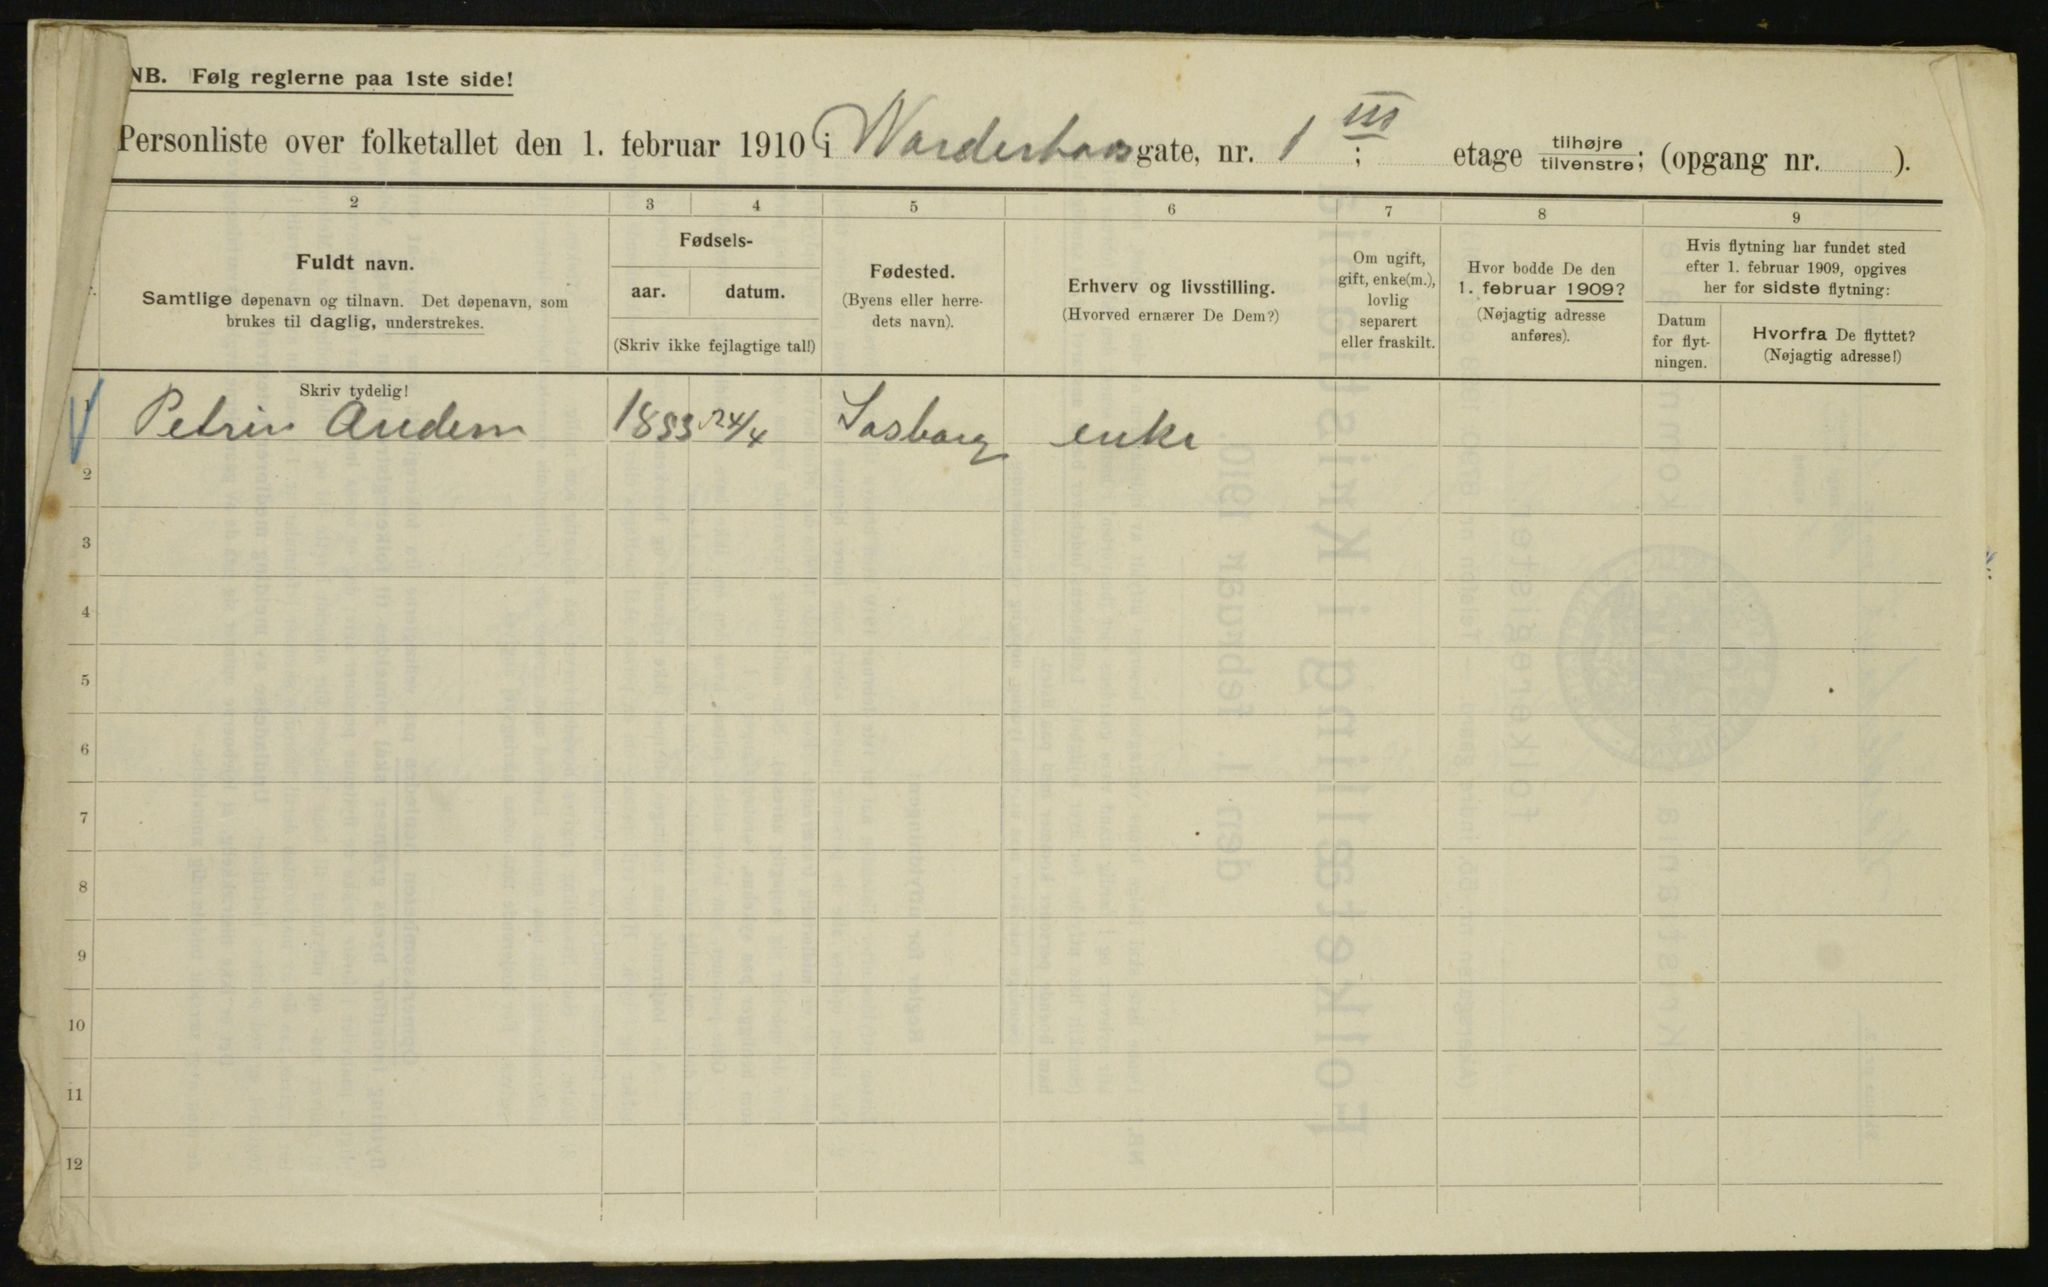 NB. Følg reglerne paa 1ste side!
Personliste over folketallet den 1. februar 1910 i Vardehusgate, nr. 1 III; etage tilhøjre tilvenstre; (opgang nr. ).
2 3 4 5 6 7 8 9
Fuldt navn.
Samtlige døpenavn og tilnavn. Det døpenavn, som
brukes til daglig, understrekes.
Skriv tydelig!
Fødsels-
aar. datum.
(Skriv ikke fejlagtige tal!)
Fødested.
(Byens eller herre-
dets navn).
Erhverv og livsstilling.
(Hvorved ernærer De Dem?)
Om ugift,
gift, enke(m.),
lovlig
separert
eller fraskilt.
Hvor bodde De den
1. februar 1909?
(Nøjagtig adresse
anføres).
Hvis flytning har fundet sted
efter 1. februar 1909, opgives
her for sidste flytning:
Datum
for flyt-
ningen.
Hvorfra De flyttet?
(Nøjagtig adresse!)
1 Petrin 24/4 enke
2
3
4
5
6
7
8
9
10
11
12